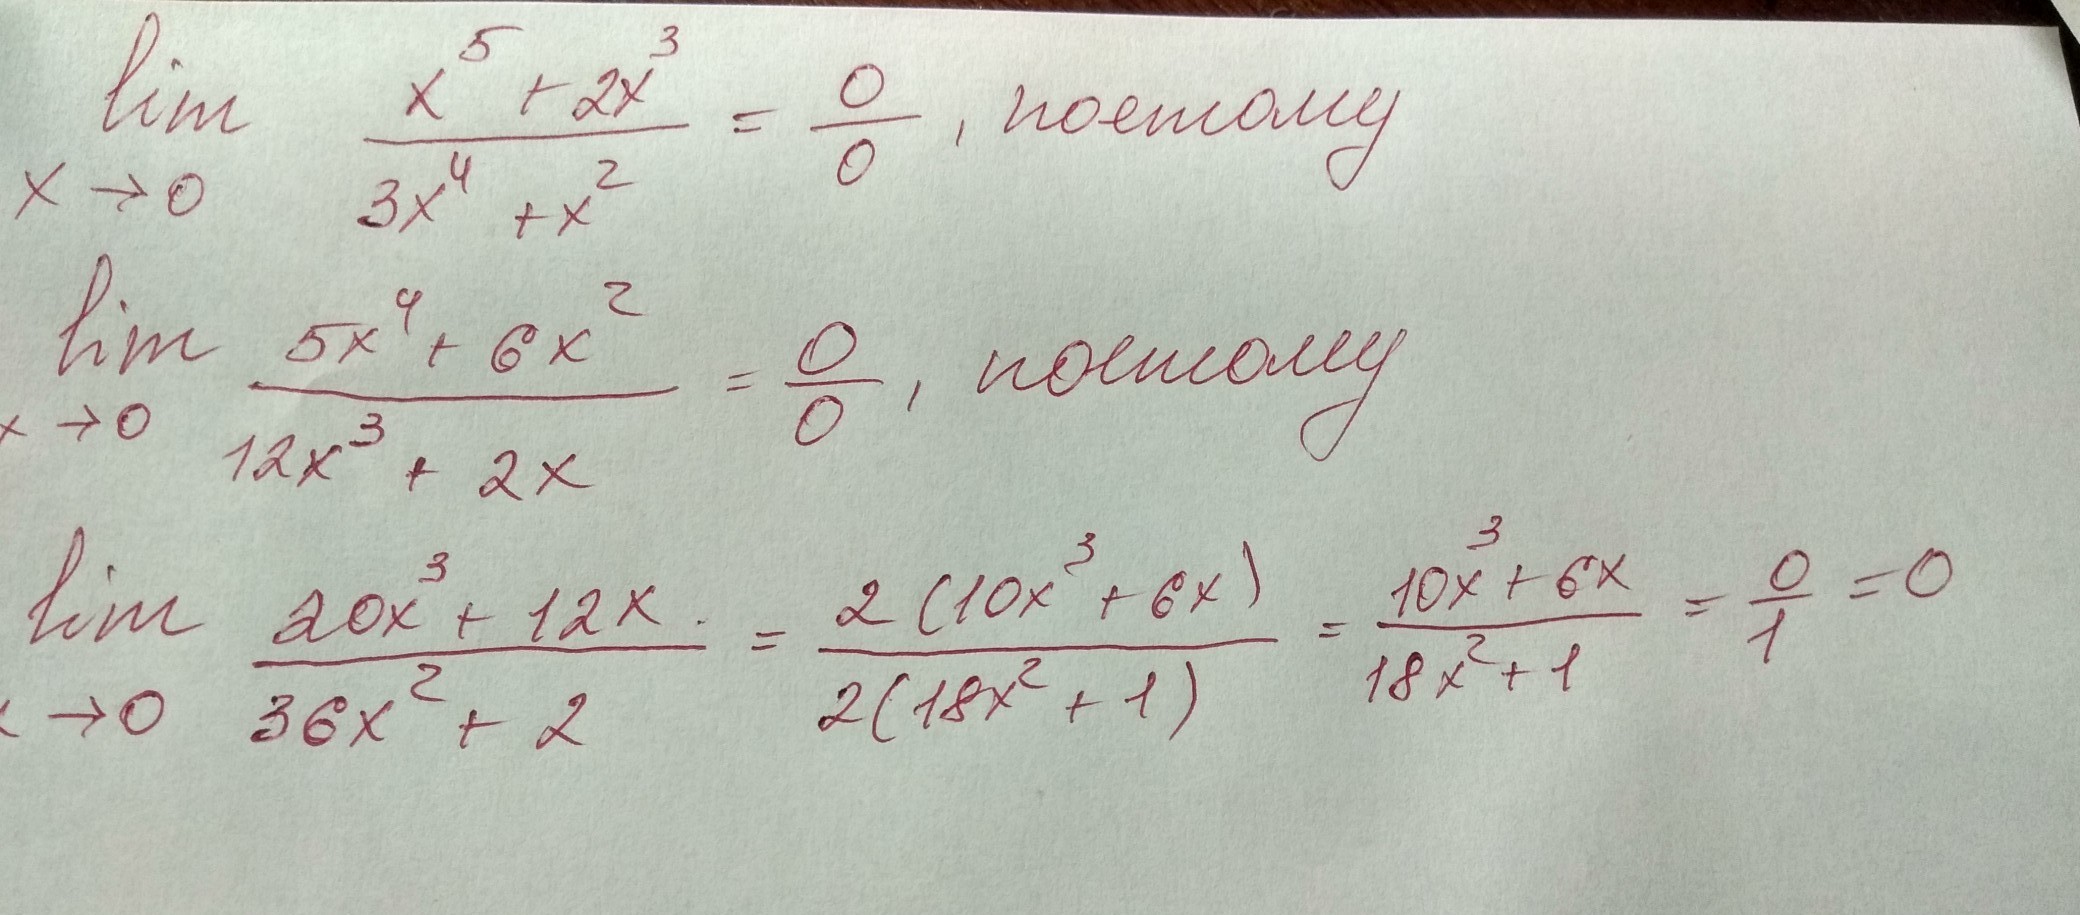 lim x→0 (x⁵ + 2x³)/(3x⁴ + x²) = 0/0, поетому
lim x→0 (5x⁴ + 6x²)/(12x³ + 2x) = 0/0, поетому
lim x→0 (20x³ + 12x)/(36x² + 2) = 2(10x³ + 6x)/2(18x² + 1) = (10x³ + 6x)/(18x² + 1) = 0/1 = 0